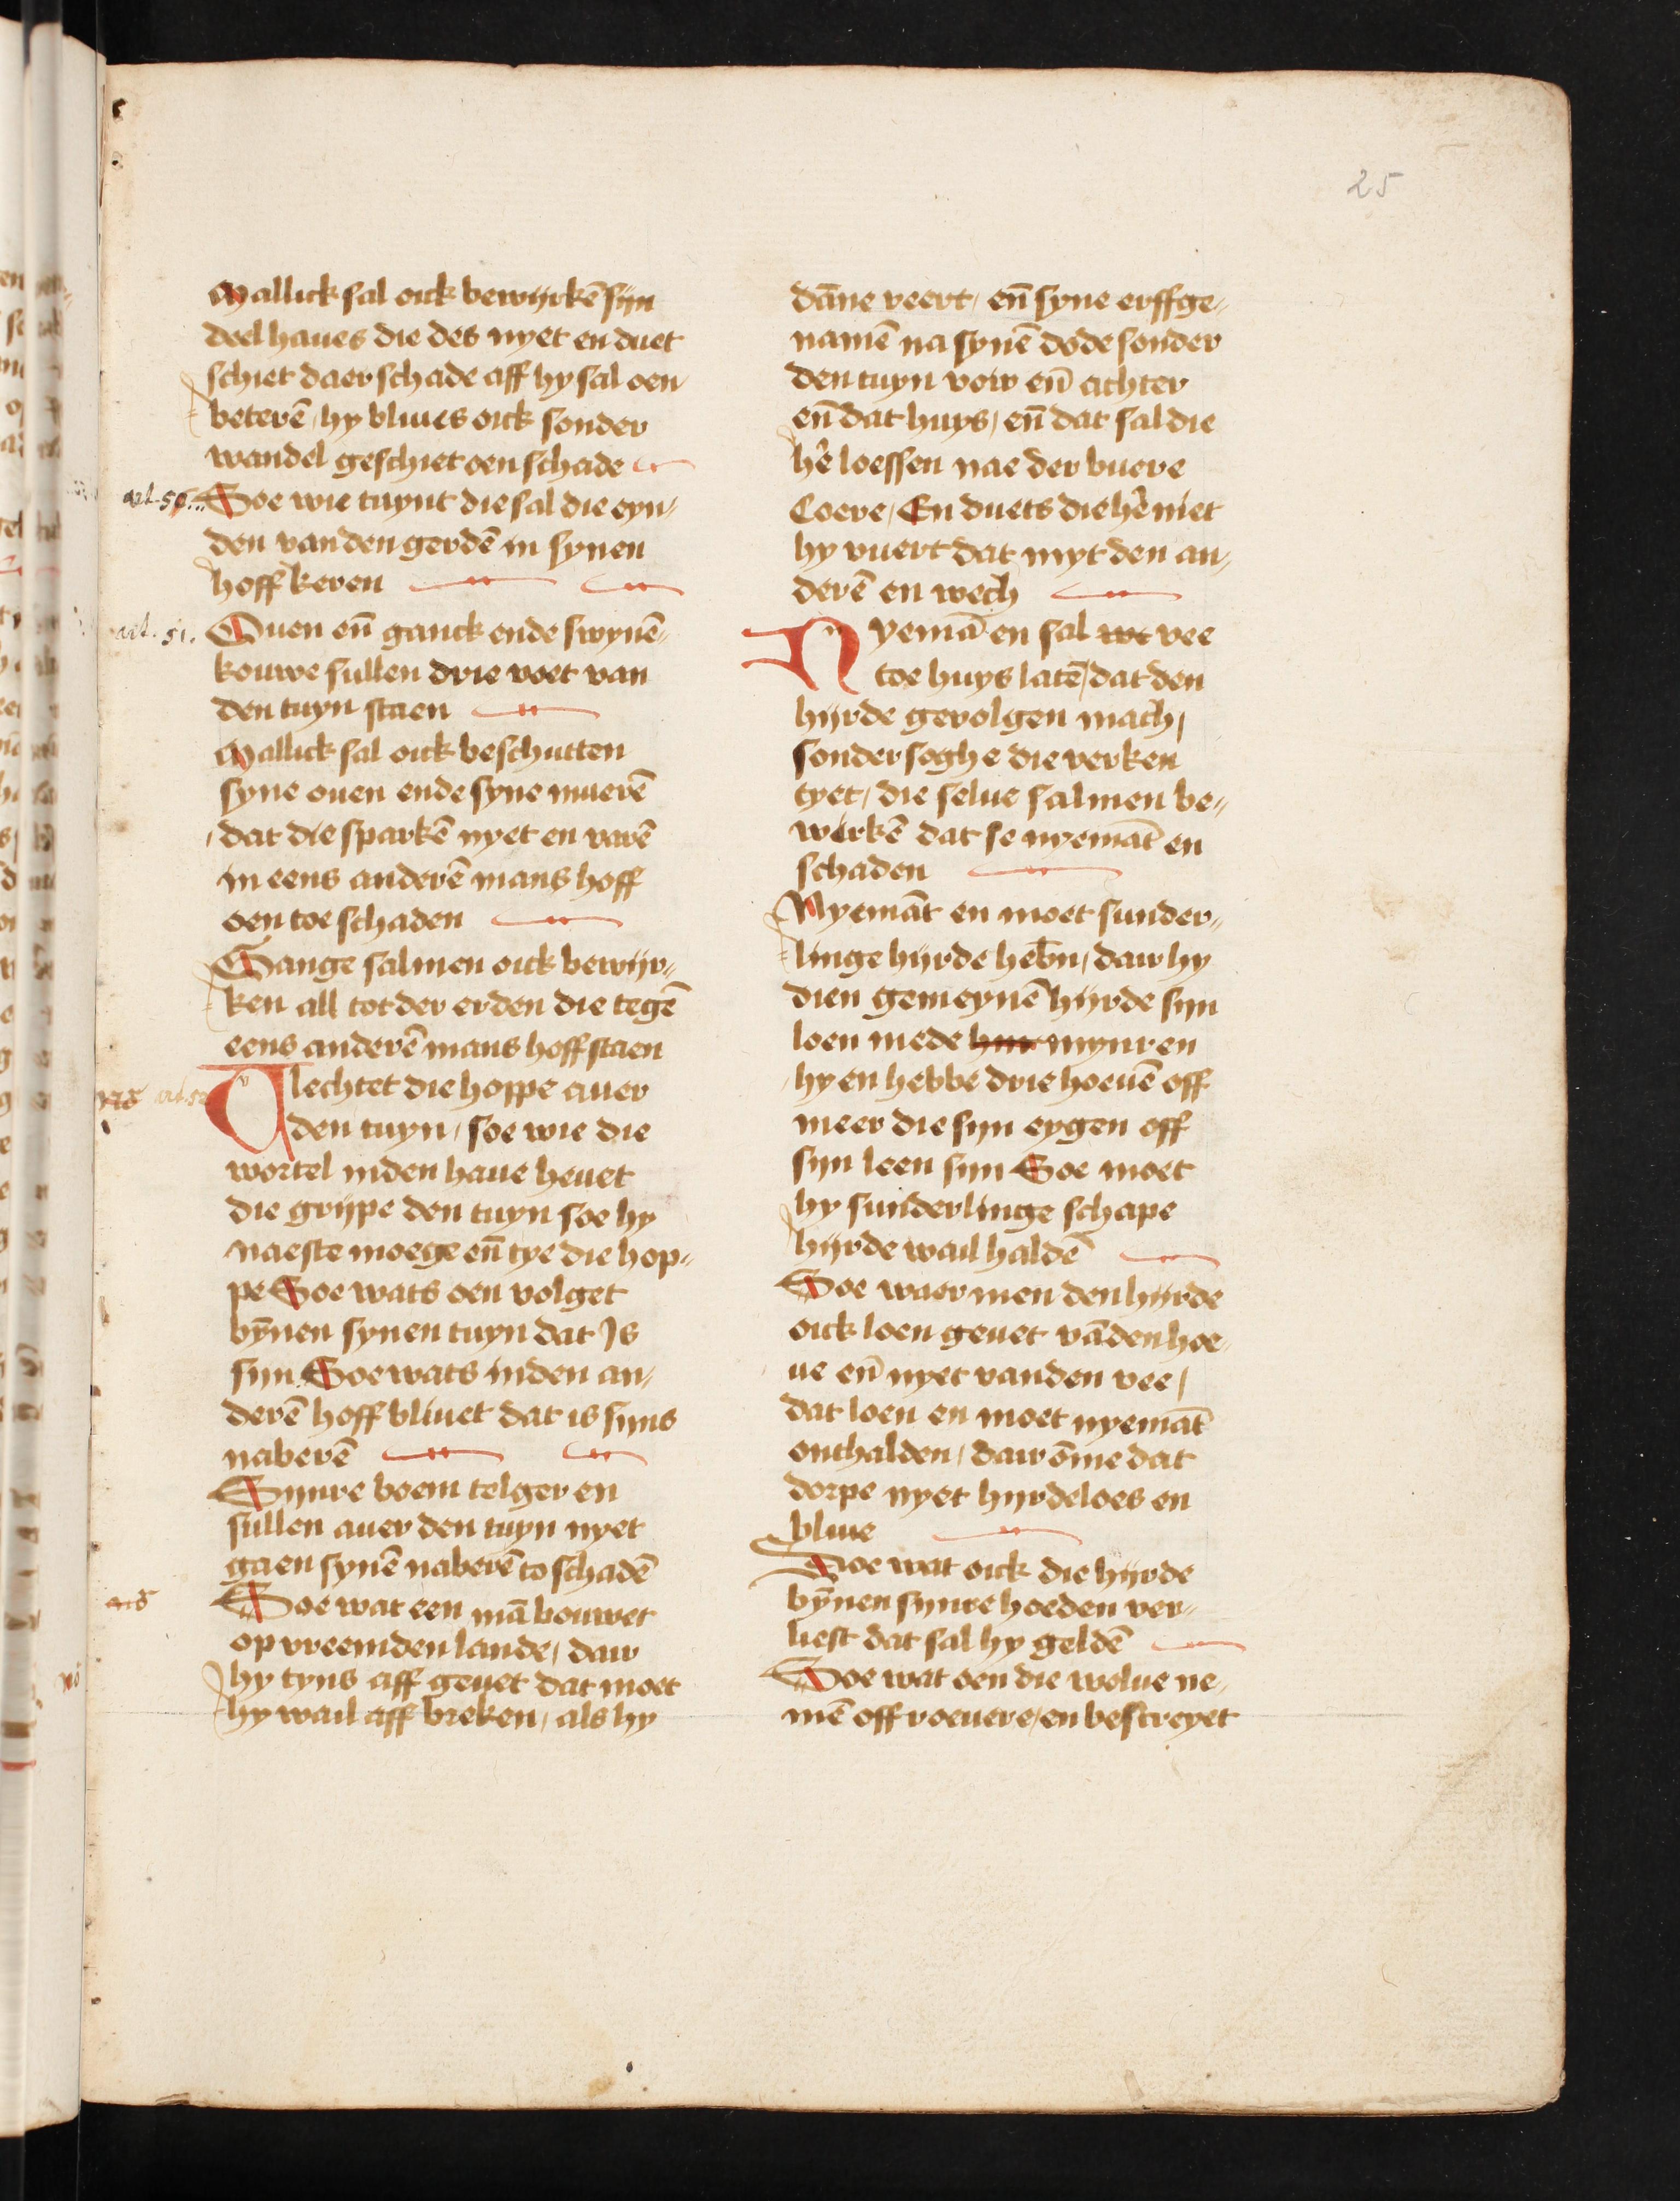 25
Mallick sal oick bewijrkē sijn
deel haues die des nyet en duet
schiet daer schade aff hy sal oen
beterē / hy bliues oick sonder
wandel geschiet oen schade
art. 50. Soe wie tuynt die sal die eyn⸗
den van den gerdē in synen
hoff keren
art. 51. Ouen en̄ ganck ende swynē⸗
kouwe sullen drie voet van
den tuyn staen
Mallick sal oick beschutten
syne ouen ende syne muerē
/ dat die sparkē nyet en varē
in eens anderē mans hoff
oen toe schaden
Gange salmen oick bewijr⸗
ken all tot der erden die tegē
eens anderē mans hoff staen
Vlechtet die hoppe auer
den tuyn / soe wie die
wortel inden haue heuet
die grijpe den tuyn soe hy
naeste moege en̄ tye die hop⸗
pe Soe wats oen volget
bȳnen synen tuyn dat Is
sijn Soe wats inden an⸗
derē hoff bliuet dat is sijns
naberē
Sijnre boem telger en
sullen auer den tuyn nyet
gaen synē naberē to schadē
Soe wat een mā bouwet
op vreemden lande / dair
hy tyns aff geuet dat moet
hy wail aff breken / als hy
dāne veert / en̄ syne erffge⸗
namē na synē dode sonder
den tuyn vow en̄ achter
en̄ dat huys / en̄ dat sal die
hē loessen nae der buere
Coere / En duets die hē niet
hy vuert dat myt den an⸗
derē en wech
Nyemā en sal we vee
toe huys latē / dat den
hijrde geuolgen mach /
sonder soghe die verken
tyet / die selue salmen be⸗
wirkē dat se nyemāt en
schaden
Nyemāt en moet sunder⸗
linge hijrde heb̄n / dair hy
dien gemeynē hijrde sijn
loen mede mynren
hy en hebbe drie hoeuē off
meer die sijn eygen off
sijn leen sijn Soe moet
hy sunderlinge schape
hijrde wail haldē
Soe waer men den hijrde
oick loen geuet vādenhoe⸗
ue en̄ nyet vanden vee /
dat loen en moet nyemāt
onthalden / dair ōme dat
dorpe nyet hijrdeloes en
bliue
Soe wat oick die hijrde
bȳnen sijnre hoeden ver⸗
liest dat sal hy geldē
Soe wat oen die wolue ne⸗
mē off roeuere / en bescreyet